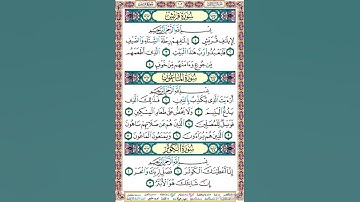 سُورَةُ قُرَيْشٍ
بِسْمِ اللَّهِ الرَّحْمَٰنِ الرَّحِيمِ
لِإِيلَافِ قُرَيْشٍ ۝١ إِيلَافِهِمْ رِحْلَةَ الشِّتَاءِ وَالصَّيْفِ
۝٢ فَلْيَعْبُدُوا رَبَّ هَٰذَا الْبَيْتِ ۝٣ الَّذِي أَطْعَمَهُمْ
مِنْ جُوعٍ وَآمَنَهُمْ مِنْ خَوْفٍ ۝٤
سُورَةُ الْمَاعُونِ
بِسْمِ اللَّهِ الرَّحْمَٰنِ الرَّحِيمِ
أَرَأَيْتَ الَّذِي يُكَذِّبُ بِالدِّينِ ۝١ فَذَٰلِكَ الَّذِي
يَدُعُّ الْيَتِيمَ ۝٢ وَلَا يَحُضُّ عَلَىٰ طَعَامِ الْمِسْكِينِ ۝٣
فَوَيْلٌ لِلْمُصَلِّينَ ۝٤ الَّذِينَ هُمْ عَنْ صَلَاتِهِمْ سَاهُونَ
۝٥ الَّذِينَ هُمْ يُرَاءُونَ ۝٦ وَيَمْنَعُونَ الْمَاعُونَ ۝٧
سُورَةُ الْكَوْثَرِ
بِسْمِ اللَّهِ الرَّحْمَٰنِ الرَّحِيمِ
إِنَّا أَعْطَيْنَاكَ الْكَوْثَرَ ۝١ فَصَلِّ لِرَبِّكَ وَانْحَرْ
۝٢ إِنَّ شَانِئَكَ هُوَ الْأَبْتَرُ ۝٣